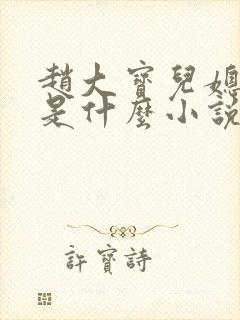 趙大寶兒媳
是什麼小說
許寶詩